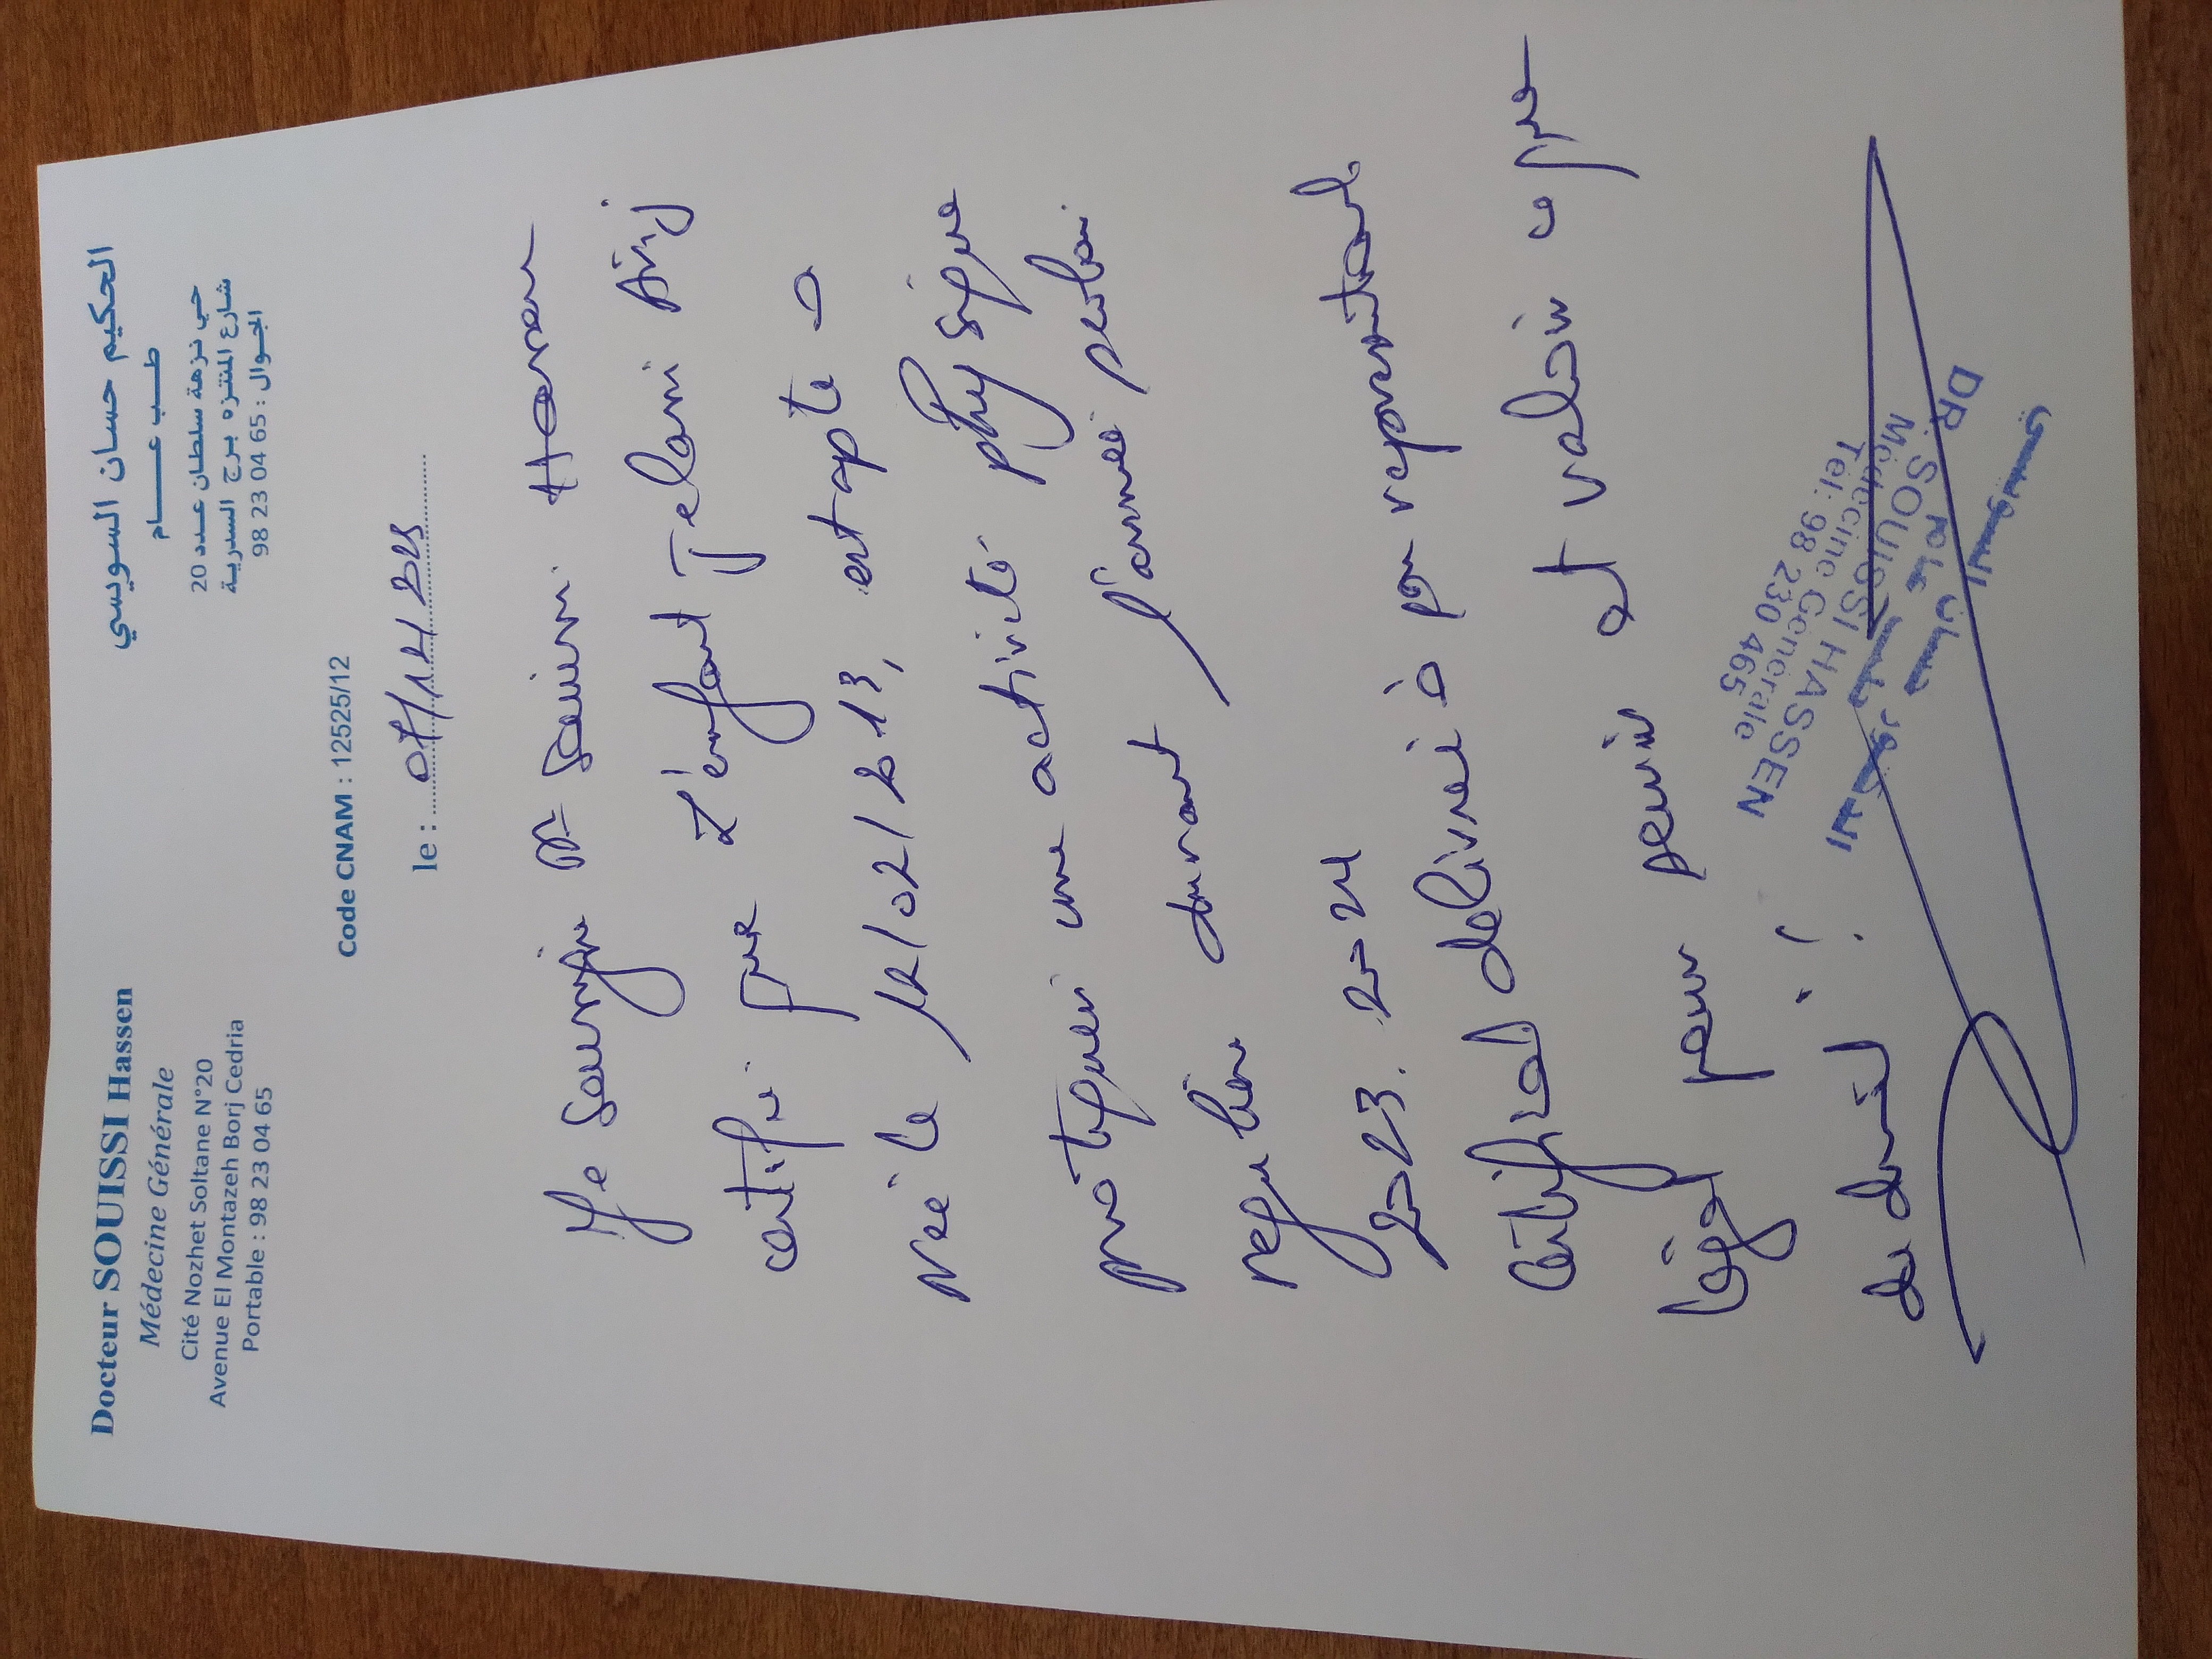 Docteur SOUISSI Hassen
Médecine Générale
Cité Nozhet Soltane N°20
Avenue El Montazeh Borj Cedria
Portable : 98 23 04 65
الحكيم حسان السويسي
طب عام
حي نزهة سلطان عدد 20
شارع المنتزه برج السدرية
الجوال : 98 23 04 65
Code CNAM : 12525/12
le :
Je Dr Souissi Hassen
certifie que l'enfant Jelani Arij
née le 12/02/2013, est apte à
pratiquer une activité physique
régulière durant l'année
2023-2024
Certificat délivré à
légal pour servir et valoir ce que
de droit
DR. SOUISSI HASSEN
Médecine Générale
Tel: 98 230 465